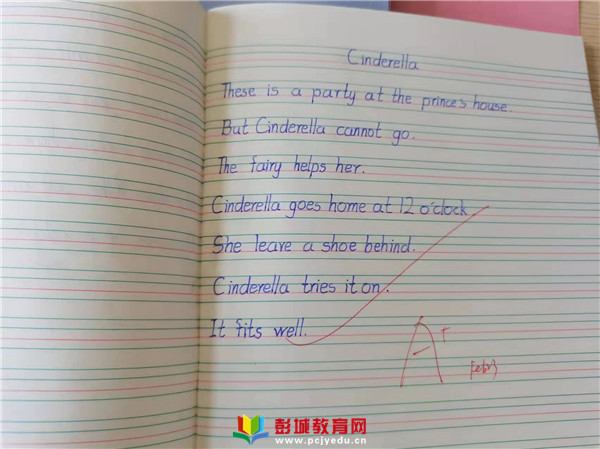 Cinderella
These is a party at the prince's house.
But Cinderella cannot go.
The fairy helps her.
Cinderella goes home at 12 o'clock
She leave a shoe behind.
Cinderella tries it on.
It fits well.
A
彭城教育网
www.pcjyedu.cn